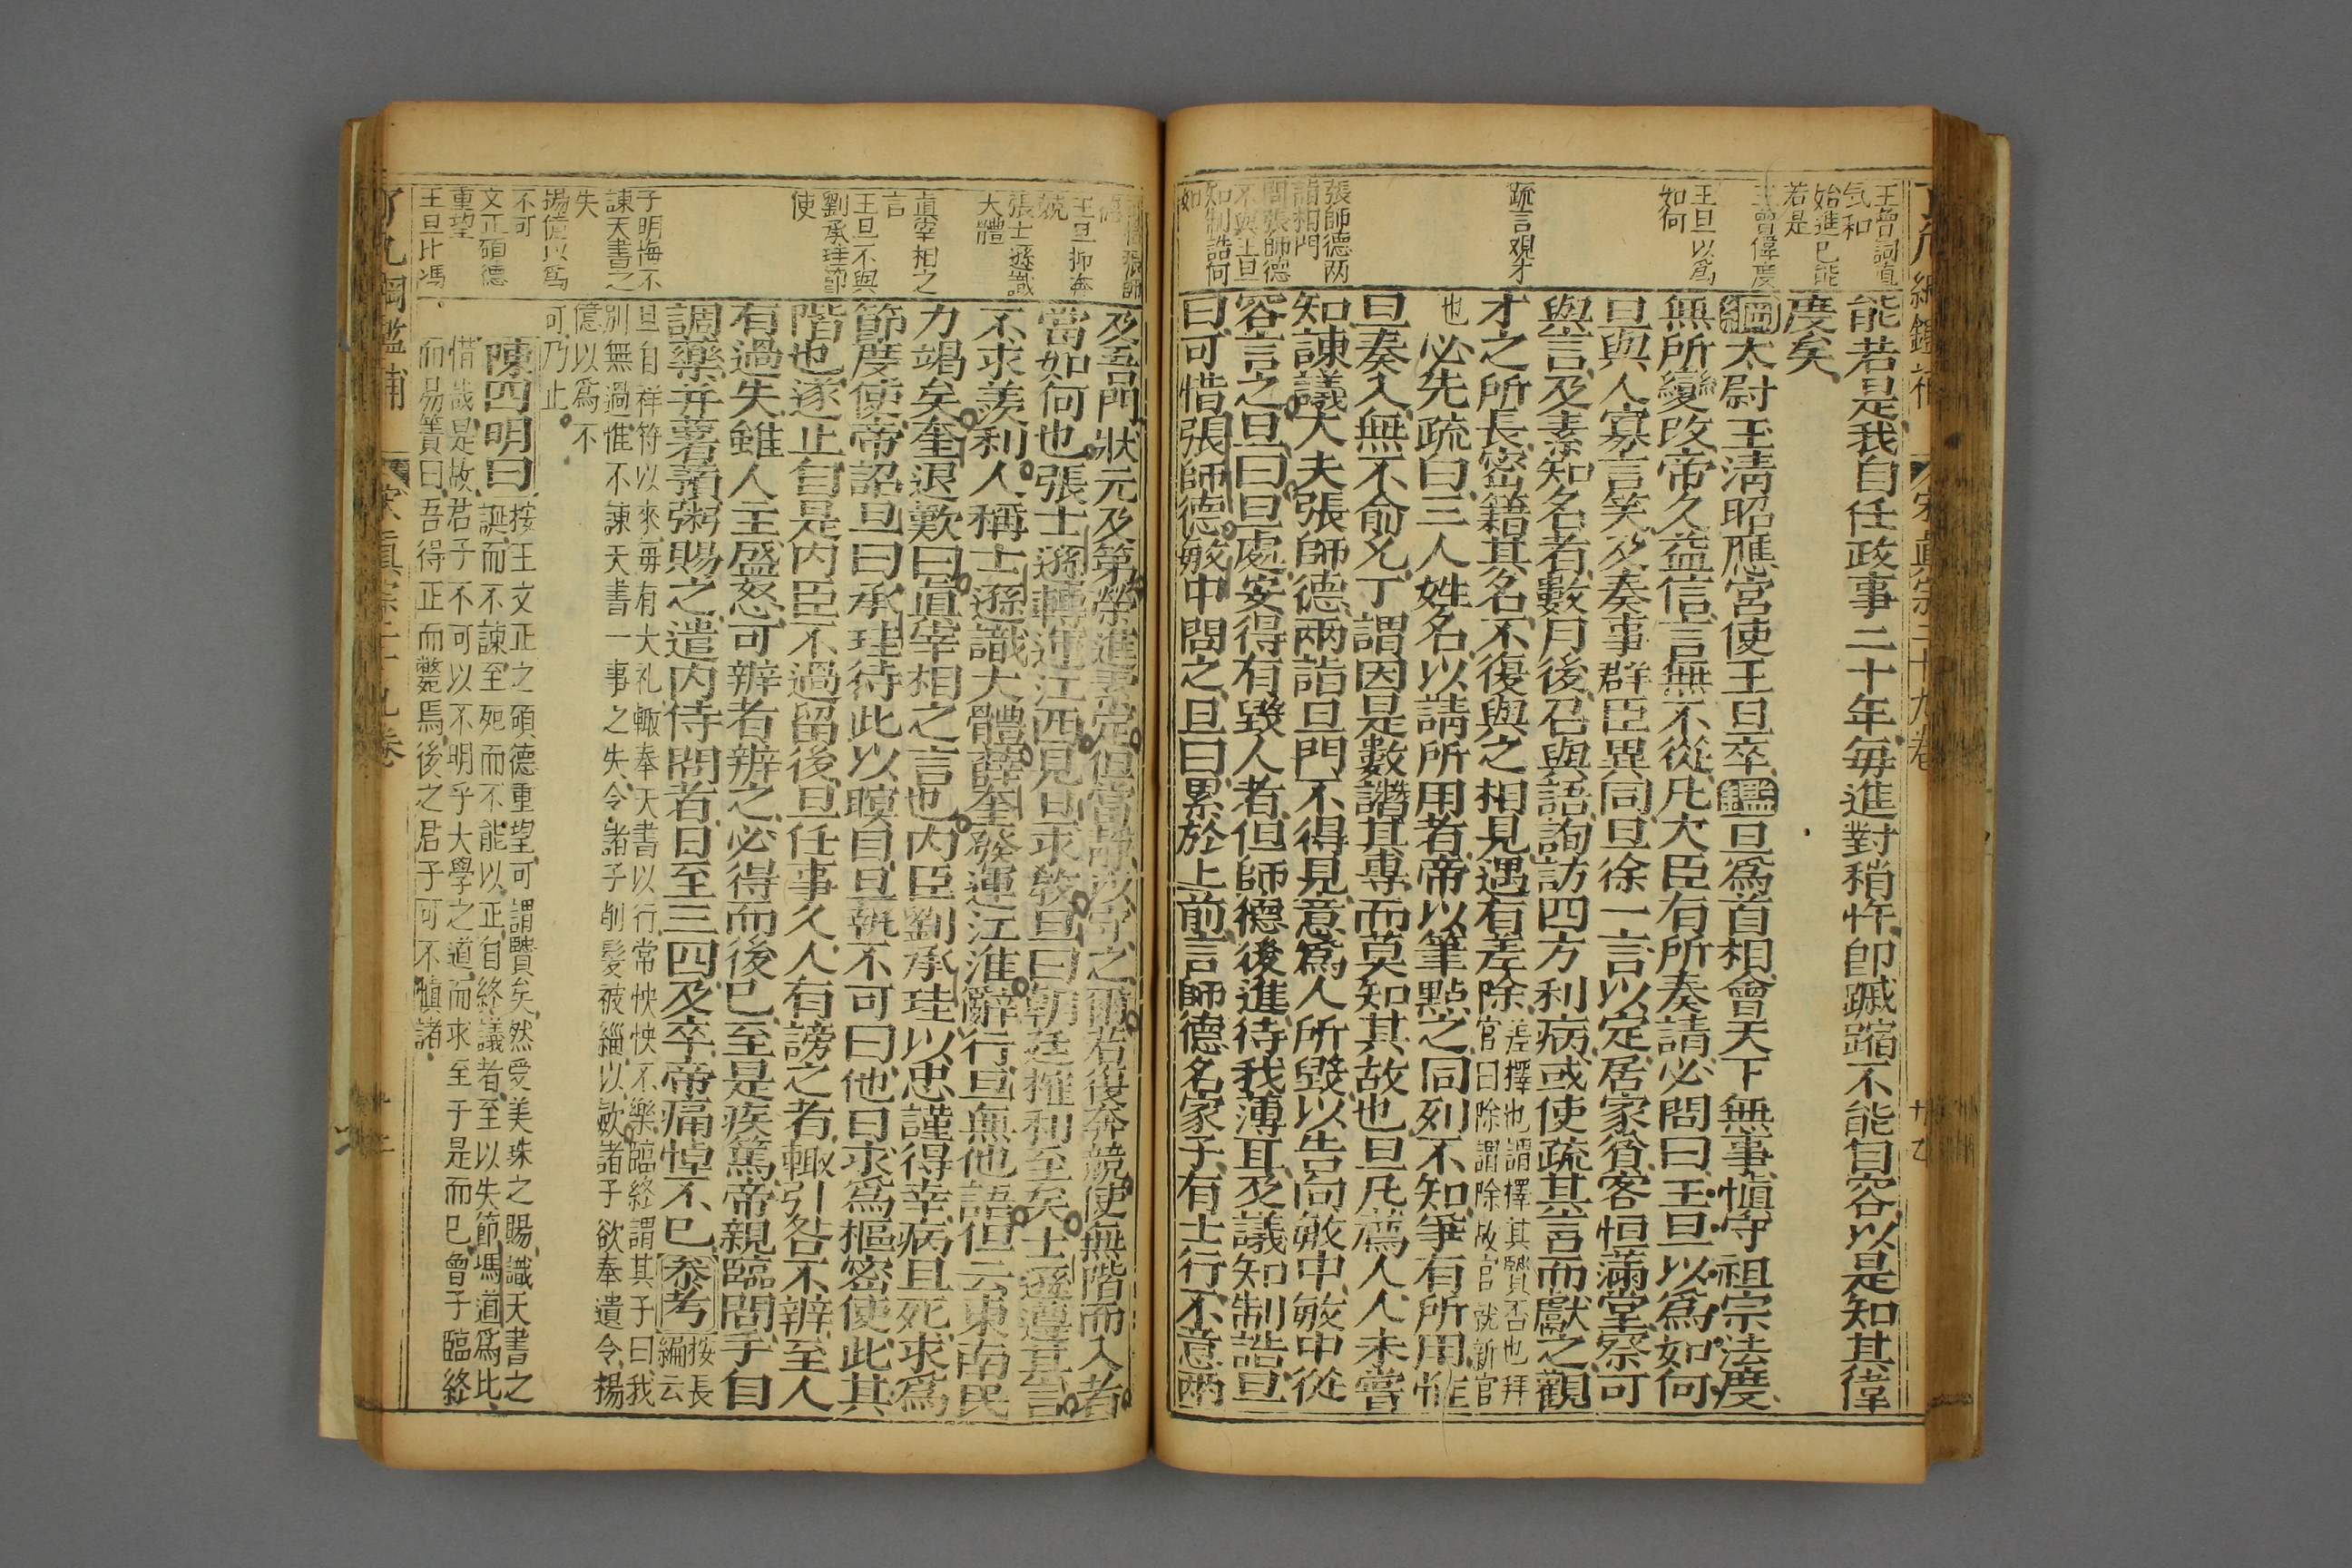 王曾詞直
気和
始進已能
若是
王曾偉度
王旦以爲
如何
疏言觀才
張師德两
詣相門
問張師德
不與王旦
知制誥何
如
能若是我自任政事二十年毎進對稍忤卽蹴踖不能自容以是知其偉
度矣
綱太尉玉淸昭應宮使王旦卒鑑旦爲首相會天下無事愼守祖宗法度
無所變改帝久益信言無不從凡大臣有所奏請必問曰王旦以爲如何
旦與人寡言笑及奏事群臣異同旦徐一言以定居家賓客恒滿堂察可
與言及素知名者數月後召與語詢訪四方利病或使疏其言而獻之觀
才之所長密籍其名不復與之相見遇有差除差擇也謂擇其賢否也拜
官曰除謂除故官就新官
也必先疏曰三人姓名以請所用者帝以筆點之同列不知爭有所用惟
旦奏入無不俞允丁謂因是數譖其專而莫知其故也旦凡薦人人未嘗
知諫議大夫張師德兩詣旦門不得見意爲人所毀以告向敏中敏中從
容言之旦曰旦處安得有毀人者但師德後進待我薄耳及議知制誥旦
曰可惜張師德敏中問之旦曰累於上前言師德名家子有士行不意兩
王旦抑奔
競
張士遜識
大體
真宰相之
言
王旦不與
劉承珪節
使
子明悔不
諫天書之
失
楊億以爲
不可
文正碩德
重望
王旦比馮
及吾門狀元及第榮進素定但當靜以守之爾若復奔競使無階而入者
當如何也張士遜轉運江西見旦求敎旦曰朝廷搉利至矣士遜遵其言
不求羨利人稱士遜識大體薛奎發運江淮辭行旦無他語但云東南民
力竭矣奎退歎曰真宰相之言也内臣劉承珪以忠謹得幸病且死求爲
節度使帝詔旦曰承珪待此以瞑目旦執不可曰他日求爲樞密使此其
階也遂止自是内臣不過留後旦任事久人有謗之者輙引咎不辨至人
有過失雖人主盛怒可辨者辨之必得而後已至是疾篤帝親臨問手自
調藥并薯蕷粥賜之遣内侍問者日至三四及卒帝痛悼不已叅考按長
編云
旦自祥符以來毎有大礼輙奉天書以行常怏怏不樂臨終謂其子曰我
別無過惟不諫天書一事之失令諸子削髮被緇以歛諸子欲奉遺令楊
億以爲不
可乃止
陳四明曰按王文正之碩德重望可謂賢矣然受美珠之賜識天書之
誕而不諫至死而不能以正自終議者至以失節馮道爲比
惜哉是故君子不可以不明乎大學之道而求至于是而已曾子臨終
而易簀曰吾得正而斃焉後之君子可不愼諸
了凡綱鑑補
宋真宗二十九卷